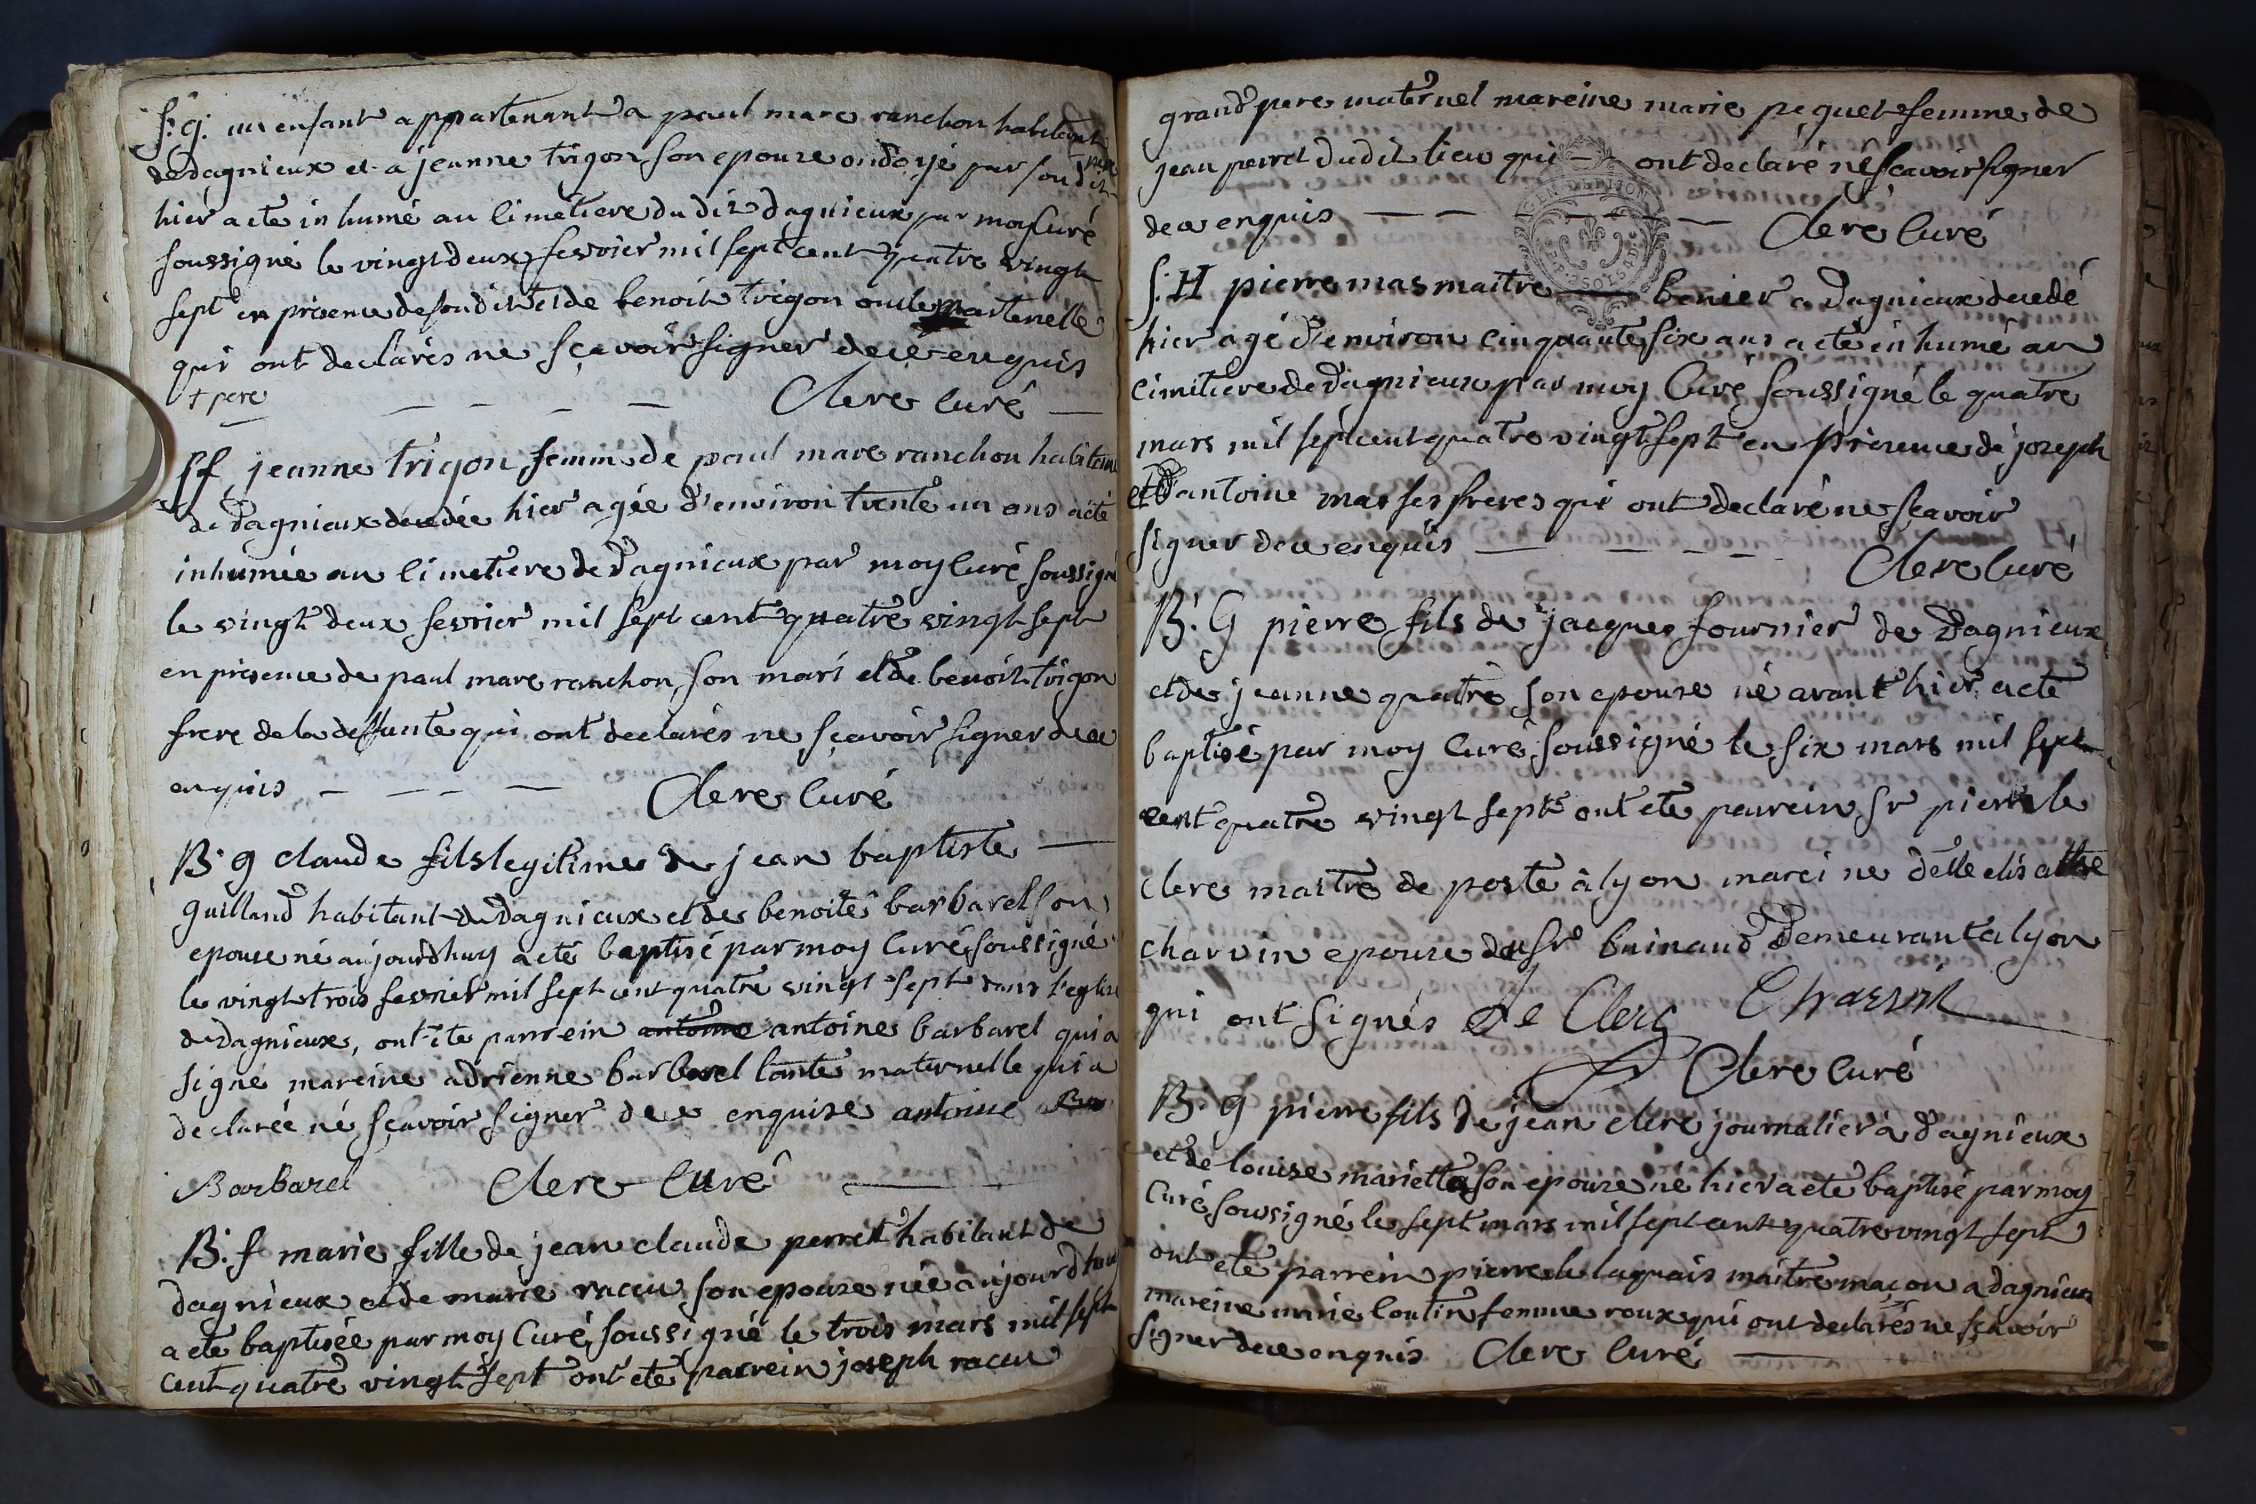 S: g: un enfant appartenant a paul marc ranchon habitant
de dagnieux et a jeanne trigon son epouze ondoyé par son dit
hier a eté inhumé au cimetiere du dit dagnieux par moy curé
soussigné le vingt deux fevrier mil sept cent quatre vingt
sept en présence de son dit et de benoit trigon oncle maternelle
qui ont declarés ne sçavoir signer de ce enquis
+ pere
Clerc curé
S f jeanne trigon femme de paul marc ranchon habitant
de dagnieux decedée hier agée d'environ trente un ans a eté
inhumée au cimetiere de dagnieux par moy curé soussigné
le vingt deux fevrier mil sept cent quatre vingt sept
en présence de paul marc ranchon son mari et de benoit trigon
frere de la deffunte qui ont declarés ne sçavoir signer de ce
enquis Clerc curé
B: g claude fils legitime de jean baptiste
guilland habitant de dagnieux et de benoite barbarel son
epouse né aujourdhuy a eté baptisé par moy curé soussigné
le vingt trois fevrier mil sept cent quatre vingt sept dans l'eglise
de dagnieux, ont été parrein antoine antoine barbarel qui a
signé mareine adrienne barbarel tante maternelle qui a
declarée né sçavoir signer de ce enquise antoine
Barbarel Clerc Curé
B: f marie fille de jean claude perret habitant de
dagnieux et de marie raccu son epouze née aujourdhuy
a eté baptisée par moy Curé soussigné le trois mars mil sept
cent quatre vingt sept ont eté parrein joseph raccu
grand pere maternel mareine marie pequet femme de
jean perret dudit lieu qui ont declaré né sçavoir signer
de ce enquis Clerc Curé
S: H pierre mas maitre benier a dagnieux decedé
hier agé d'environ cinquante six ans a eté inhumé au
cimetiere de dagnieux par moy Curé soussigné le quatre
mars mil sept cent quatre vingt sept en présence de jozeph
et d'antoine mas ses freres qui ont declaré ne sçavoir
signer de ce enquis
Clerc Curé
B: G pierre fils de jacques fournier de dagnieux
et de jeanne quatre son epouze né avant hier a eté
baptisé par moy Curé soussigné le six mars mil sept
cent quatre vingt sept ont eté parrein Sr pierre le
clerc maitre de poste à lyon mareine delle elisabthe
charvin epouze du Sr buinand demeurant a lyon
qui ont signés Le Clerc Charvin
Clerc Curé
B: g pierre fils de jean clerc journalier à dagnieux
et de louize mariette son epouze né hier a eté baptisé par moy
Curé soussigné le sept mars mil sept cent quatre vingt sept
ont eté parrein pierre le laquais maitre maçon a dagnieux
mareine marie loutin femme roux qui ont declarés ne sçavoir
signer de ce enquis Clerc Curé